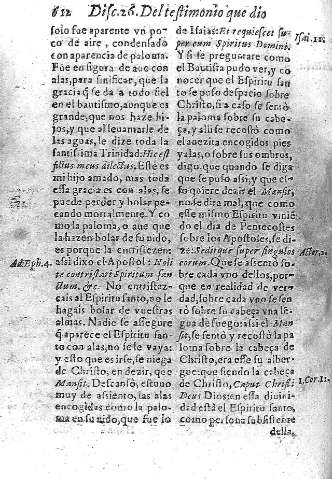 612 Disc. 28. Del testimonio que dio
solo fue aparente vn po-
co de aire, condensado
con aparencia de paloma.
Fue en figura de aue con
alas, para sinificar, que la
gracia q̃ se da a todo fiel
en el bautismo, aunque es
grande, que nos haze hi-
jos, y que al leuantarle de
las aguas, le dize toda la
santissima Trinidad: Hic est
filius meus dilectus. Este es
mi hijo amado, mas toda
essa gracia es con alas, se
puede perder y bolar pe-
cando mortalmente. Y co
mo la paloma, o aue que
la hazen bolar de su nido,
es porque la entristezen:
assi dixo el Apostol: Noli
te contristare Spiritum san
ctum, &c. No entristez-
cais al Espiritu santo, no le
hagais bolar de vuestras
almas. Nadie se assegure
q̃ aparece el Espiritu san-
to con alas, no se se vayas
y esto que es irse, se niega
de Christo, en dezir, que
Mansit. Descansò, estuuo
muy de assiento, las alas
encogidas como la palo-
ma en su nido, que fue lo
Ad Eph. 4.
de Isaias: Et requiescet su-
per eum Spiritus Domini.
Y si se preguntare como
el Bautista pudo ver, y co
nocer que el Espiritu san-
to se posò despacio sobre
Christo, si a caso se sentò
la paloma sobre su cabe-
ça, y alli se recostò como
el auezita encogidos pies
y alas, o sobre sus ombros,
digo, que quando se dixe
ra que se puso assi, y que es-
so quiere dezir el Mansit,
no se dira mal, que como
esse mismo Espiritu vinie
do el dia de Pentecostes
sobre los Apostoles, se di-
ze: Seditque super singulos
eorum. Que se assentò so-
bre cada vno dellos, por-
que en realidad de ver-
dad, sobre cada vno se sen
tò sobre su cabeça vna lẽ-
gua de fuego: assi el Man-
sit, se sentò y recostò la pa
loma sobre la cabeça de
Christo, era esse su alber-
gue: que siendo la cabeça
de Christo, Caput Christi
Deus Dios: en essa diuini-
dad està el Espiritu santo,
como persona subsistente
della,
Isai. 11.
Actor. 2.
1. Cor. 11.